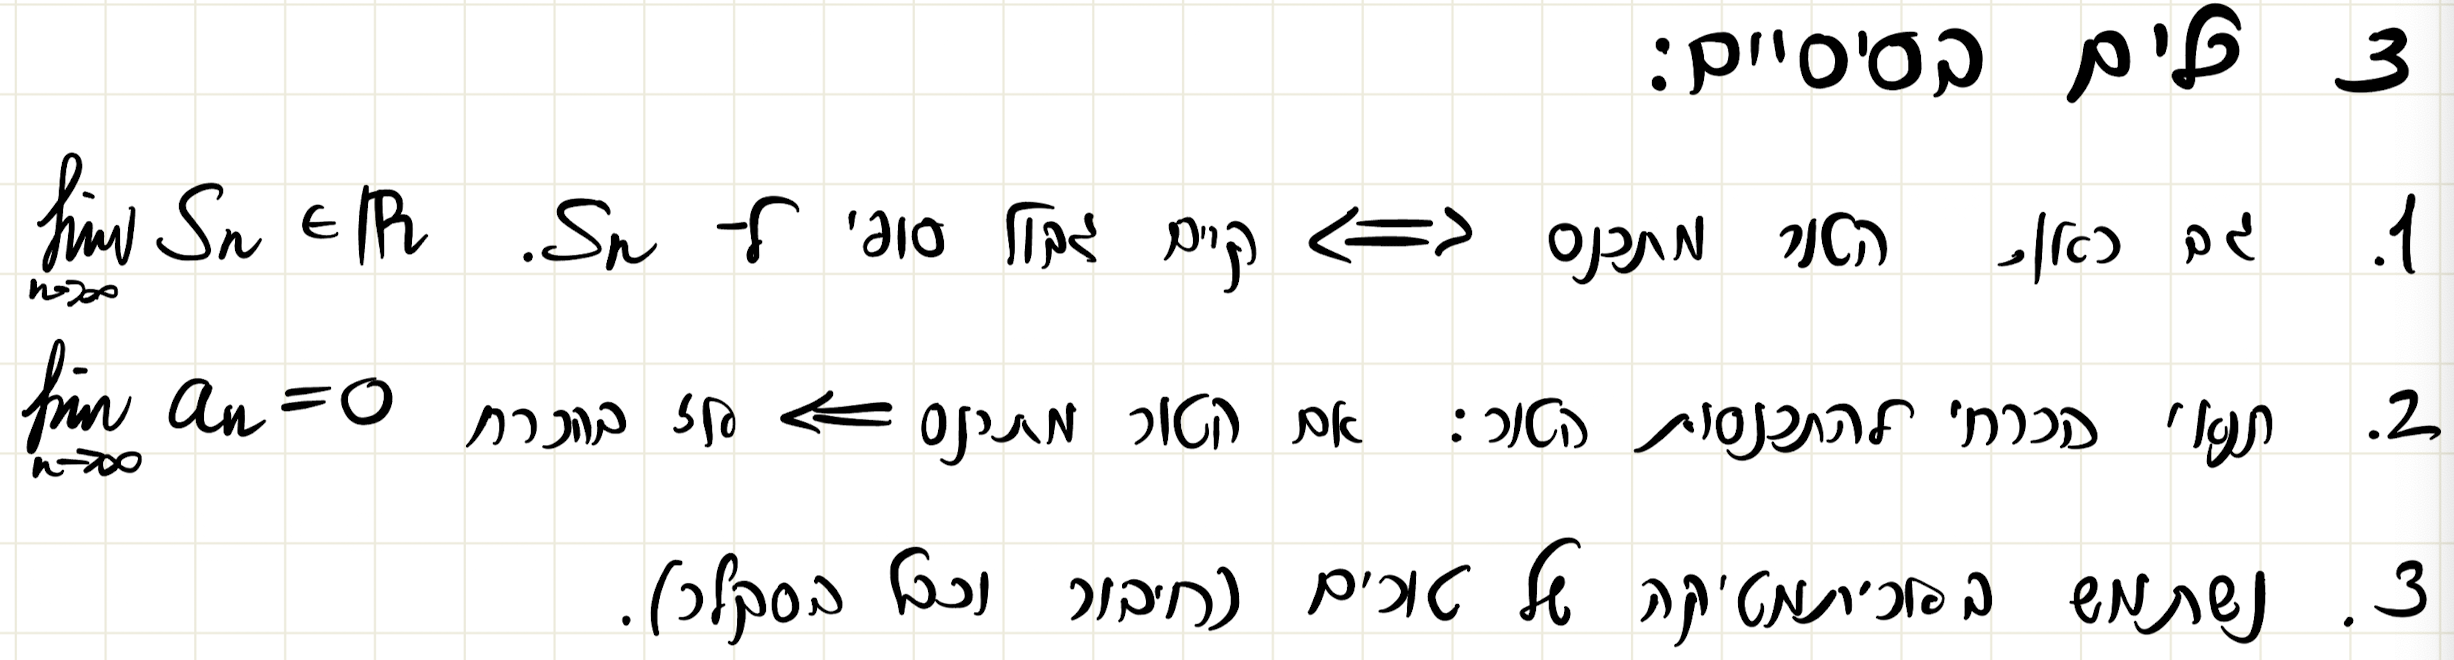 3 כלים בסיסיים:
1. גם כאן, הטור מתכנס <=> קיים גבול סופי ל- Sn. lim n→∞ Sn ∈ ℝ
2. תנאי הכרחי להתכנסות הטור: אם הטור מתכנס <= אז בהכרח lim n→∞ an = 0
3. נשתמש באריתמטיקה של טורים (חיבור וכפל בסקלר).